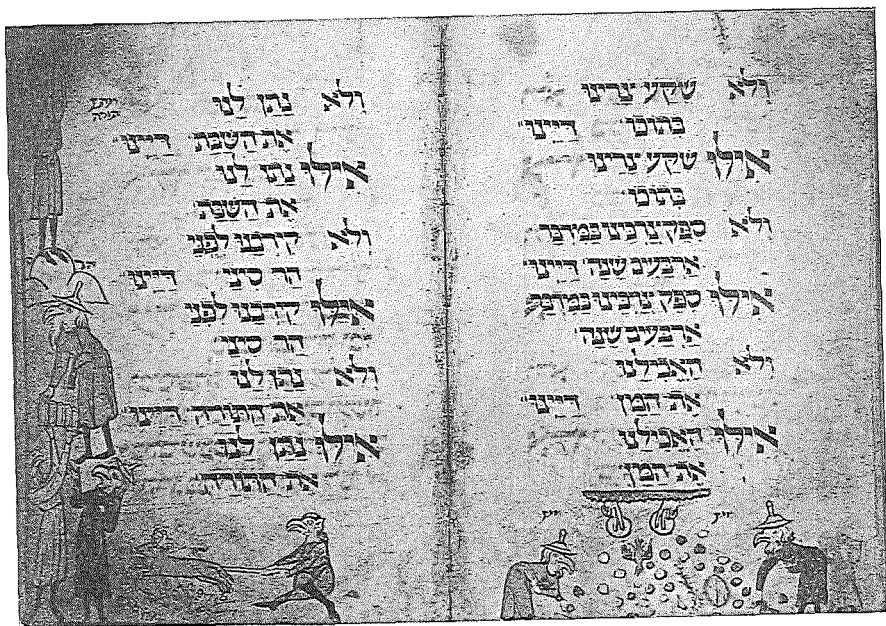 וְלֹא שִׁקַּע צָרֵינוּ
בְּתוֹכוֹ דַּיֵּינוּ
אִילּוּ שִׁקַּע צָרֵינוּ
בְּתוֹכוֹ
וְלֹא סִפֵּק צָרְכֵּינוּ בַּמִּדְבָּר
אַרְבָּעִים שָׁנָה דַּיֵּינוּ
אִילּוּ סִפֵּק צָרְכֵּינוּ בַּמִּדְבָּר
אַרְבָּעִים שָׁנָה
וְלֹא הֶאֱכִילָנוּ
אֶת הַמָּן דַּיֵּינוּ
אִילּוּ הֶאֱכִילָנוּ
אֶת הַמָּן
וְלֹא נָתַן לָנוּ
אֶת הַשַּׁבָּת דַּיֵּינוּ
אִילּוּ נָתַן לָנוּ
אֶת הַשַּׁבָּת
וְלֹא קֵירְבָנוּ לִפְנֵי
הַר סִינַי דַּיֵּינוּ
אִילּוּ קֵירְבָנוּ לִפְנֵי
הַר סִינַי
וְלֹא נָתַן לָנוּ
אֶת הַתּוֹרָה דַּיֵּינוּ
אִילּוּ נָתַן לָנוּ
אֶת הַתּוֹרָה